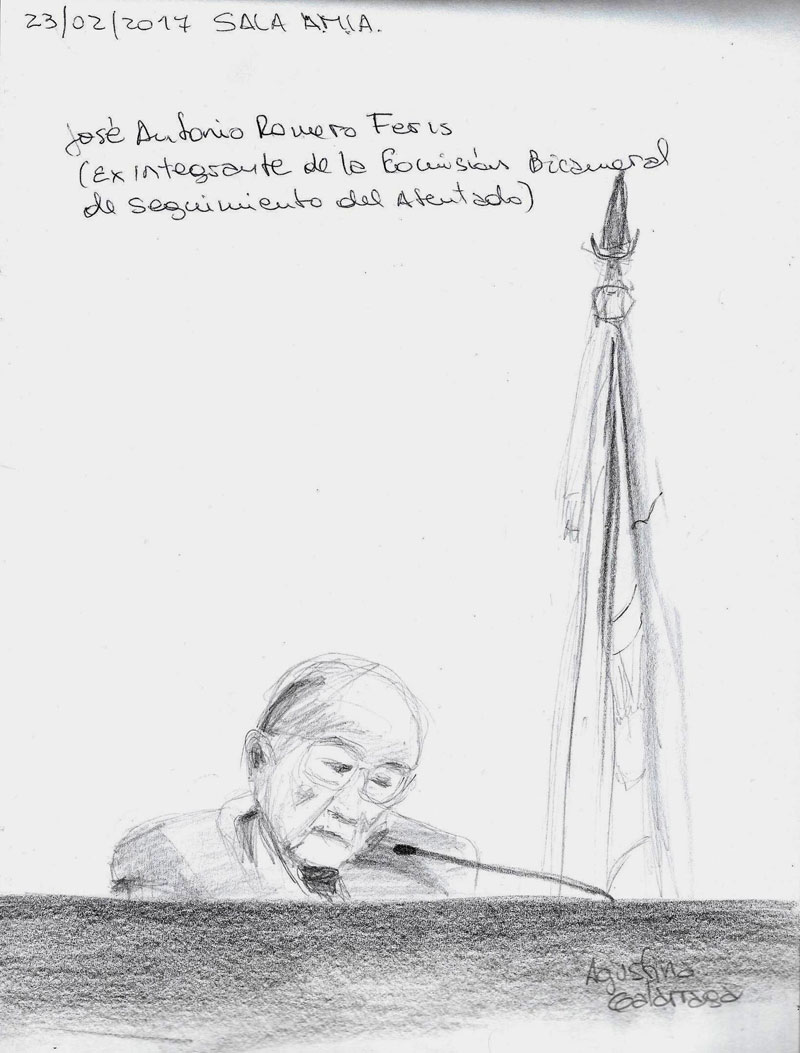 23/02/2017 SALA AMIA.
José Antonio Romero Feris
(Ex integrante de la Comisión Bicameral
de seguimiento del Atentado)
Agustina
Galarraga